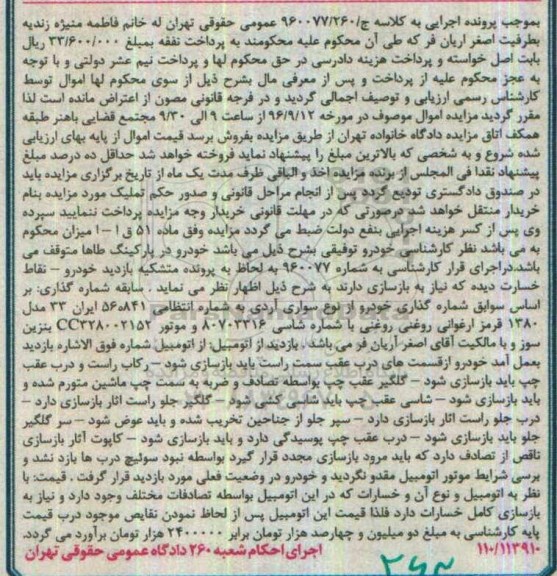 بموجب پرونده اجرایی به کلاسه ج/۹۶۰۰۷۷/۲۶۰ عمومی حقوقی تهران له خانم فاطمه منیژه زندیه
بطرفیت اصغر اریان فر که طی آن محکوم علیه محکومند به پرداخت نفقه بمبلغ ۳۳/۶۰۰/۰۰۰ ریال
بابت اصل خواسته و پرداخت هزینه دادرسی در حق محکوم لها و پرداخت نیم عشر دولتی و با توجه
به عجز محکوم علیه از پرداخت و پس از معرفی مال بشرح ذیل از سوی محکوم لها اموال توسط
کارشناس رسمی ارزیابی و توصیف اجمالی گردید و در فرجه قانونی مصون از اعتراض مانده است لذا
مقرر گردید مزایده اموال موصوف در مورخه ۹۶/۹/۱۲ از ساعت ۹ الی ۹/۳۰ مجتمع قضایی باهنر طبقه
همکف اتاق مزایده دادگاه خانواده تهران از طریق مزایده بفروش برسد قیمت اموال از پایه بهای ارزیابی
شده شروع و به شخصی که بالاترین مبلغ را پیشنهاد نماید فروخته خواهد شد حداقل ده درصد مبلغ
پیشنهاد نقدا فی المجلس از برنده مزایده اخذ و الباقی ظرف مدت یک ماه از تاریخ برگزاری مزایده باید
در صندوق دادگستری تودیع گردد پس از انجام مراحل قانونی و صدور حکم تملیک مورد مزایده بنام
خریدار منتقل خواهد شد درصورتی که در مهلت قانونی خریدار وجه مزایده پرداخت ننمایید سپرده
وی پس از کسر هزینه اجرایی بنفع دولت ضبط می گردد مزایده وفق ماده ۵۱ ق ا – ا میزان محکوم
به می باشد نظر کارشناسی خودرو توقیفی بشرح ذیل می باشد خودرو در پارکینگ طاها متوقف می
باشد.دراجرای قرار کارشناسی به شماره ۹۶۰۰۷۷ به لحاظ به پرونده متشکیه بازدید خودرو – نقاط
خسارت دیده که نیاز به بازسازی دارند به شرح ذیل اظهار نظر می نماید . سابقه شماره گذاری: بر
اساس سوابق شماره گذاری خودرو از نوع سواری آردی به شماره انتظامی ۸۴۱د۵۶ ایران ۳۳ مدل
۱۳۸۰ قرمز ارغوانی روغنی روغنی با شماره شاسی ۸۰۷۰۳۳۱۶ و موتور CC۳۲۸۰۰۲۱۵۲ بنزین
سوز و با مالکیت آقای اصغر آریان فر می باشد . بازدید از اتومبیل: از اتومبیل شماره فوق الاشاره بازدید
بعمل آمد خودرو ازقسمت های درب عقب سمت راست باید بازسازی شود – رکاب راست و درب عقب
چپ باید بازسازی شود – گلگیر عقب چپ بواسطه تصادف و ضربه به سمت چپ ماشین متورم شده و
باید بازسازی شود – شاسی عقب چپ باید شاسی کشی شود – گلگیر جلو راست اثار بازسازی دارد –
درب جلو راست اثار بازسازی دارد – سپر جلو از جناحین تخریب شده و باید عوض شود – سر گلگیر
جلو باید بازسازی شود – درب عقب چپ پوسیدگی دارد و باید بازسازی شود – کاپوت آثار بازسازی
ناقص از تصادف دارد که باید مرود بازسازی مجدد قرار گیرد بواسطه نبود سوئیچ درب ها بازد نشد و
برسی شرایط موتور اتومبیل مقدو نگردید و خودرو در وضعیت فعلی مورد بازدید قرار گرفت . قیمت: با
نظر به اتومبیل و نوع آن و خسارات که در این اتومبیل بواسطه تصادفات مختلف وجود دارد و نیاز به
بازسازی کامل خسارات دارد فلذا قیمت این اتومبیل پس از لحاظ نمودن نقایص موجود درب قیمت
پایه کارشناسی به مبلغ دو میلیون و چهارصد هزار تومان برابر ۲۴۰۰۰۰۰ هزار تومان برآورد می گردد.
۱۱۰/۱۱۳۹۱۰ اجرای احکام شعبه ۲۶۰ دادگاه عمومی حقوقی تهران